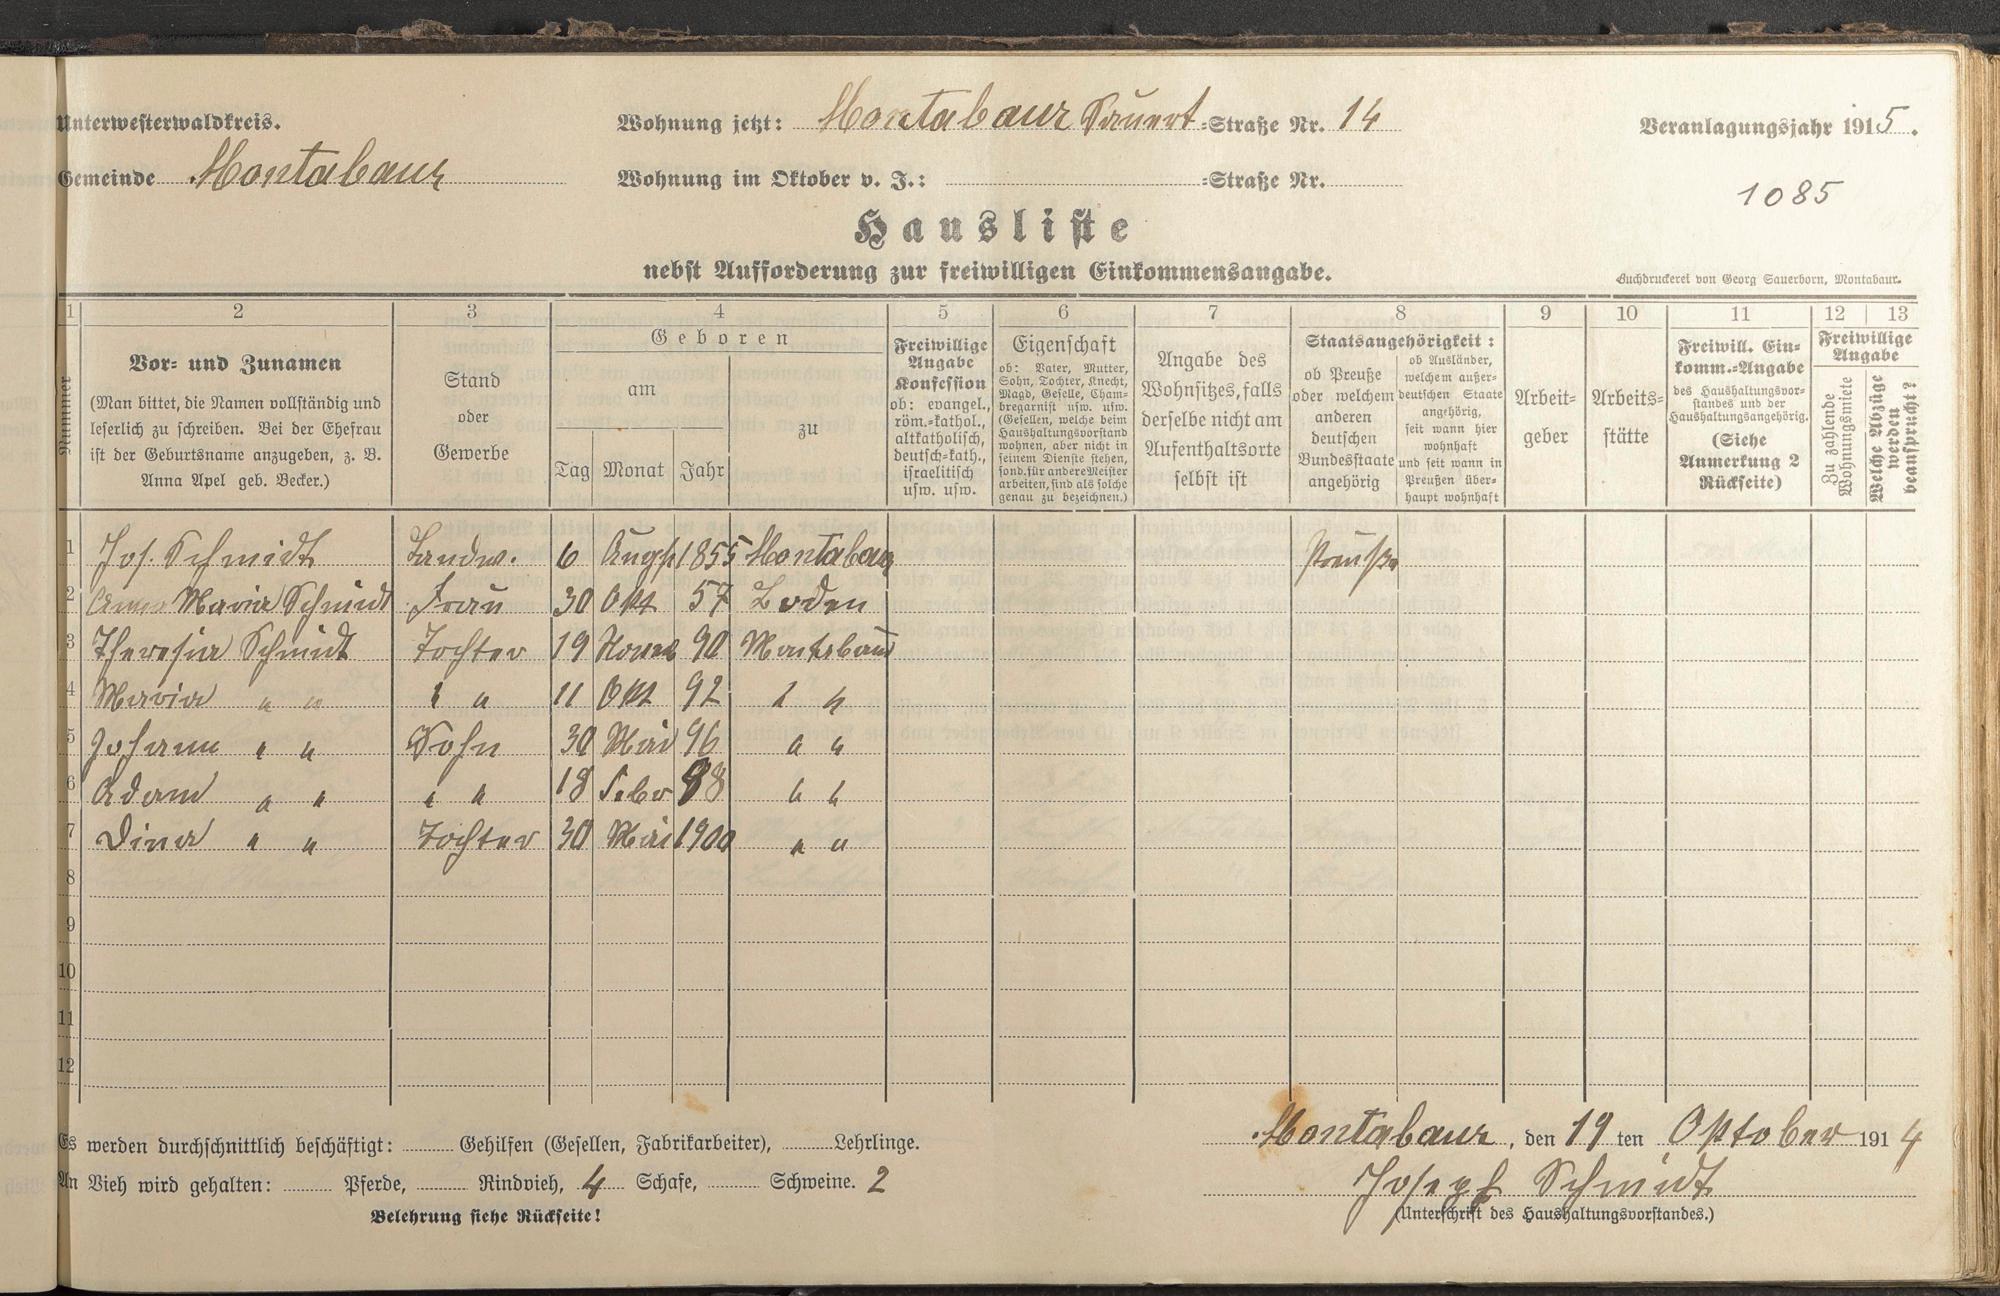 Unterwesterwaldkreis.
Wohnung jetzt: Montabaur Sauert-Straße Nr. 14
Veranlagungsjahr 1915.
Gemeinde Montabaur
Wohnung im Oktober v. J.: -Straße Nr.
1085
Hausliste
nebst Aufforderung zur freiwilligen Einkommensangabe.
Buchdruckerei von Georg Sauerborn, Montabaur.
1 2 3 4 5 6 7 8 9 10 11 12 13
Nummer
Vor- und Zunamen
(Man bittet, die Namen vollständig und
leserlich zu schreiben. Bei der Ehefrau
ist der Geburtsname anzugeben, z. B.
Anna Apel geb. Becker.)
Stand
oder
Gewerbe
Geboren
am
zu
Tag Monat Jahr
Freiwillige
Angabe
Konfession
ob: evangel.,
röm.-kathol.,
altkatholisch,
deutsch-kath.,
israelitisch
usw. usw.
Eigenschaft
ob: Vater, Mutter,
Sohn, Tochter, Knecht,
Magd, Geselle, Cham-
bregarnist usw. usw.
(Gesellen, welche beim
Haushaltungsvorstand
wohnen, aber nicht in
seinem Dienste stehen,
sond. für andere Meister
arbeiten, sind als solche
genau zu bezeichnen.)
Angabe des
Wohnsitzes, falls
derselbe nicht am
Aufenthaltsorte
selbst ist
Staatsangehörigkeit:
ob Preuße
oder welchem
anderen
deutschen
Bundesstaate
angehörig
ob Ausländer,
welchem außer-
deutschen Staate
angehörig,
seit wann hier
wohnhaft
und seit wann in
Preußen über-
haupt wohnhaft
Arbeit-
geber
Arbeits-
stätte
Freiwill. Ein-
komm.-Angabe
des Haushaltungsvor-
standes und der
Haushaltungsangehörig.
(Siehe
Anmerkung 2
Rückseite)
Freiwillige
Angabe
Zu zahlende
Wohnungsmiete
Welche Abzüge
werden
beansprucht?
1 Jos. Schmidt Landw. 6 Augst 1855 Montabaur Preuße
2 Anna Maria Schmidt Frau 30 Okt 57 Boden
3 Theresia Schmidt Tochter 19 Novmb 90 Montabaur
4 Maria " " " " 11 Okt 92 " "
5 Johann " " Sohn 30 Mai 96 " "
6 Adam " " " " 18 Febr 98 " "
7 Dina " " Tochter 30 Mai 1900 " "
8
9
10
11
12
Montabaur, den 19 ten Oktober 1914
Es werden durchschnittlich beschäftigt: Gehilfen (Gesellen, Fabrikarbeiter), Lehrlinge.
Joseph Schmidt
An Vieh wird gehalten: Pferde, Rindvieh, 4 Schafe, Schweine. 2
(Unterschrift des Haushaltungsvorstandes.)
Belehrung siehe Rückseite!